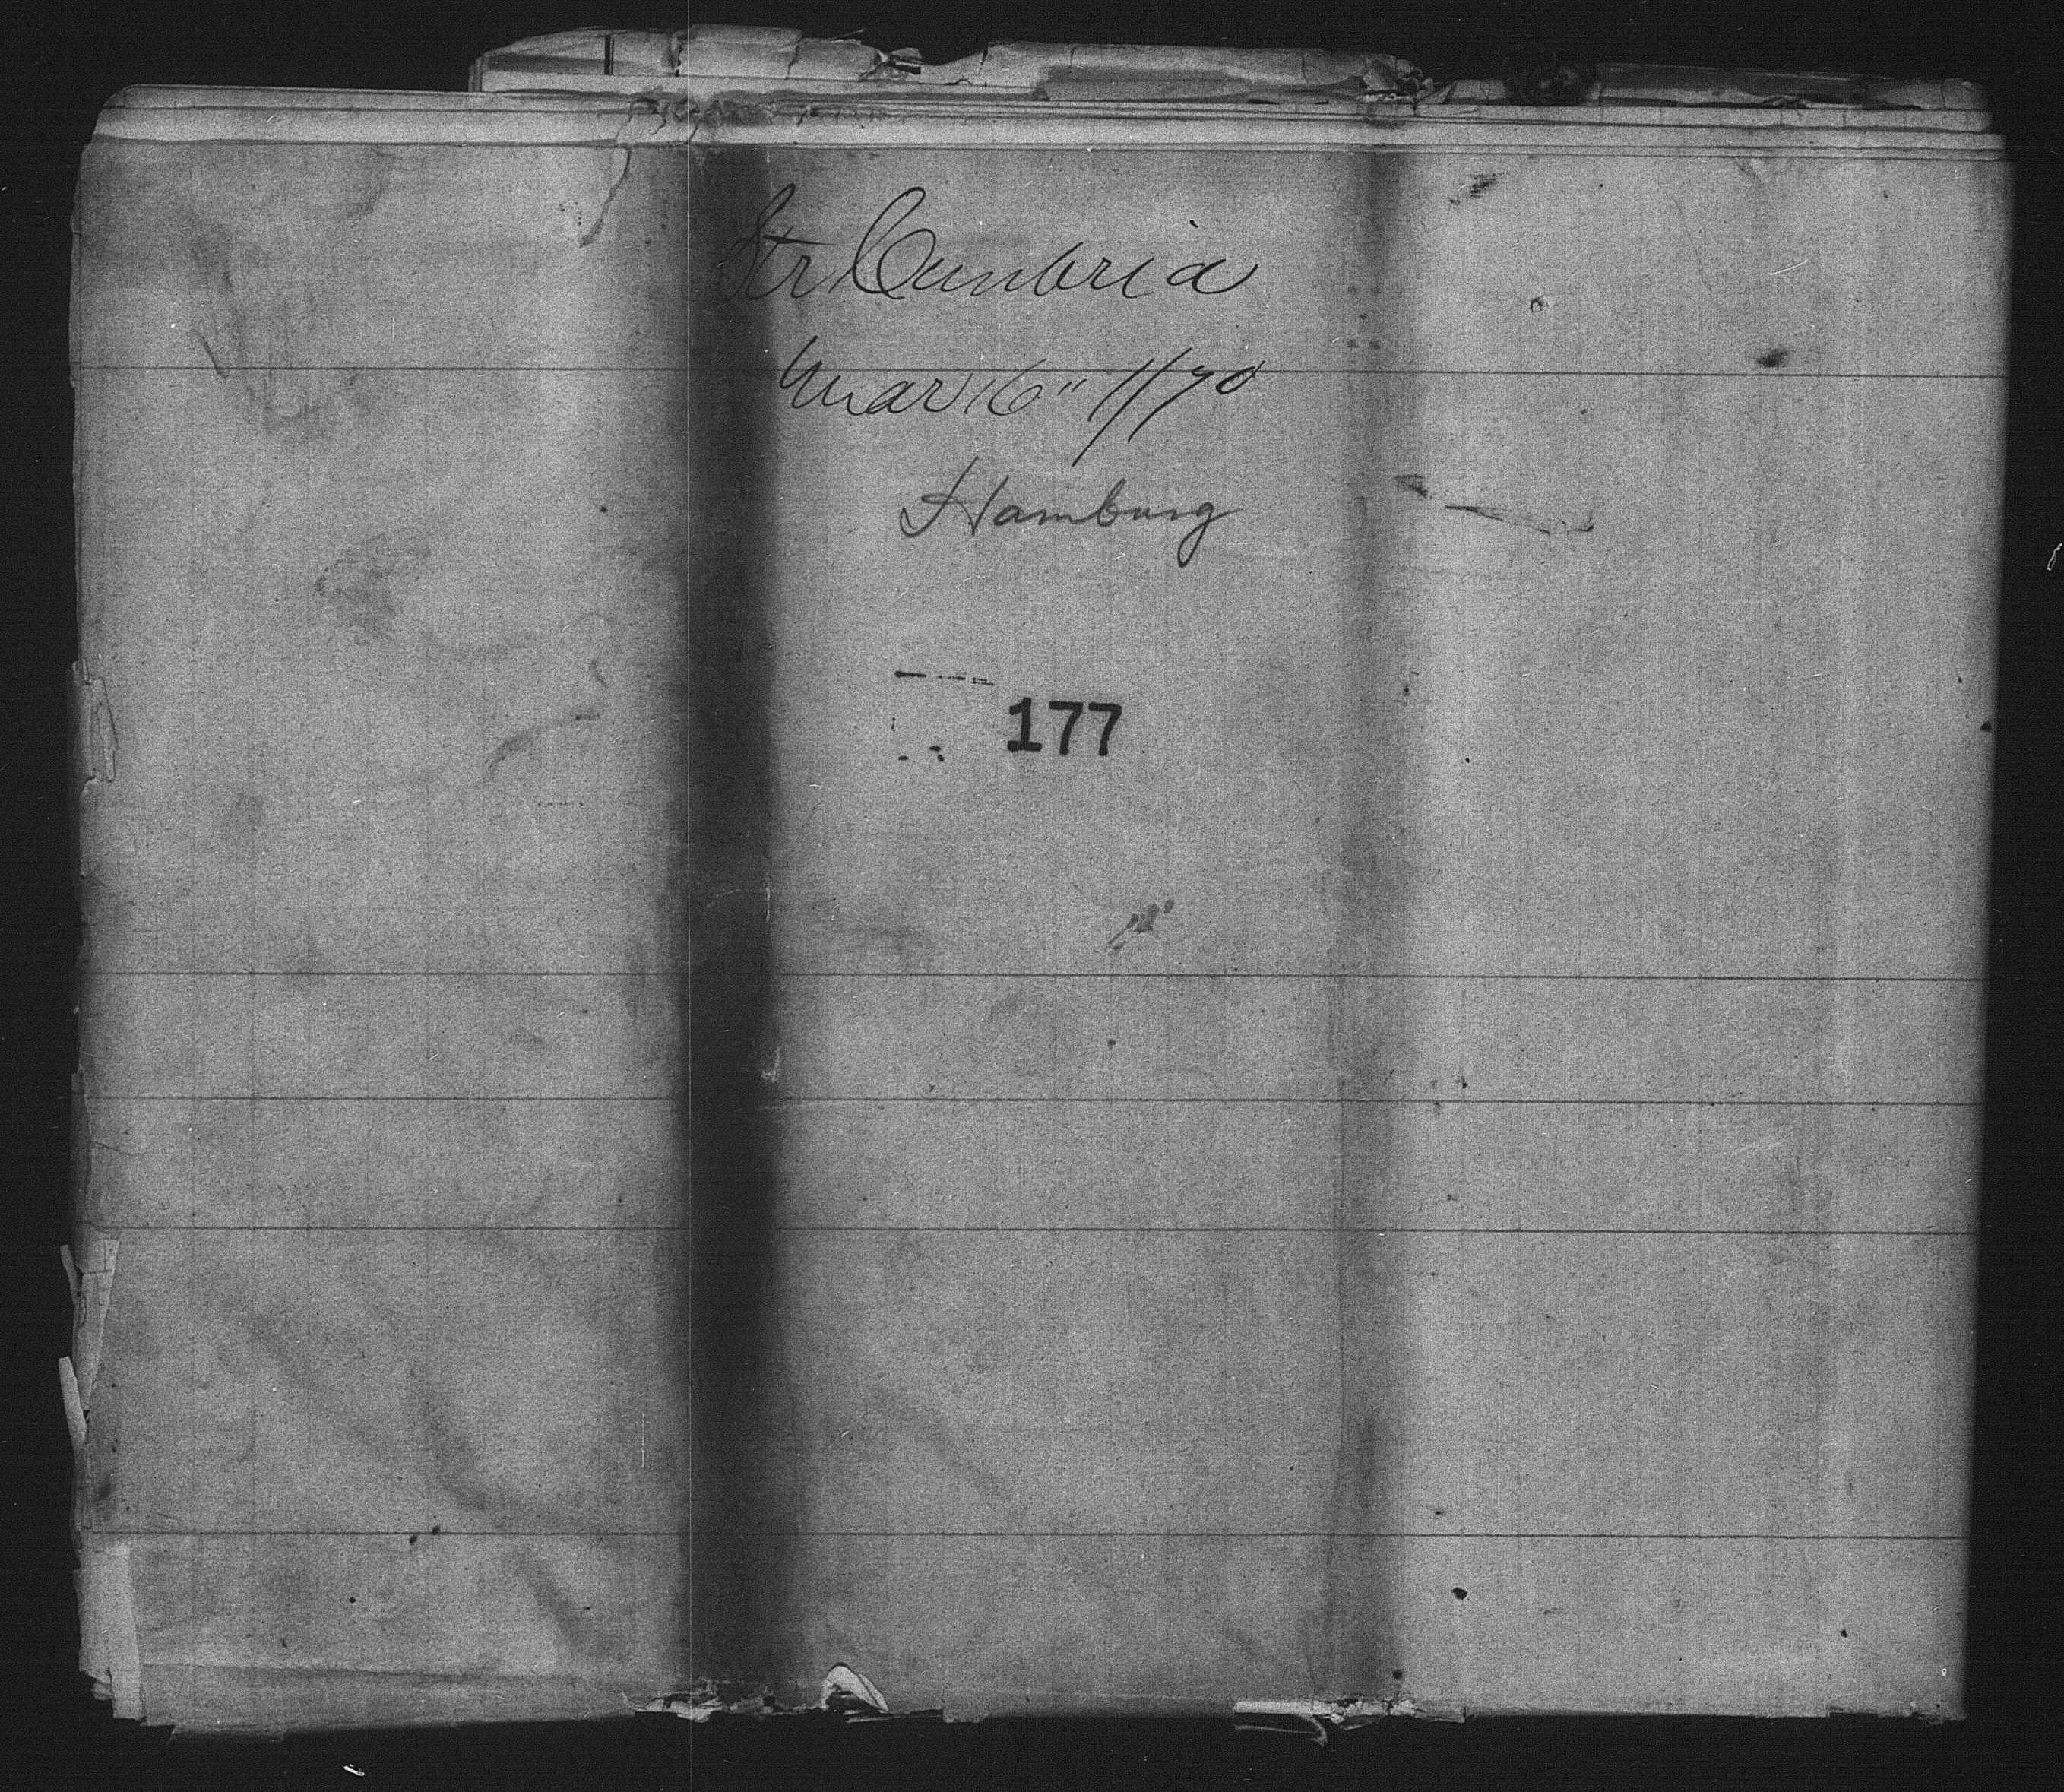 Str Cimbria
Mar 16" 1870
Hamburg
177